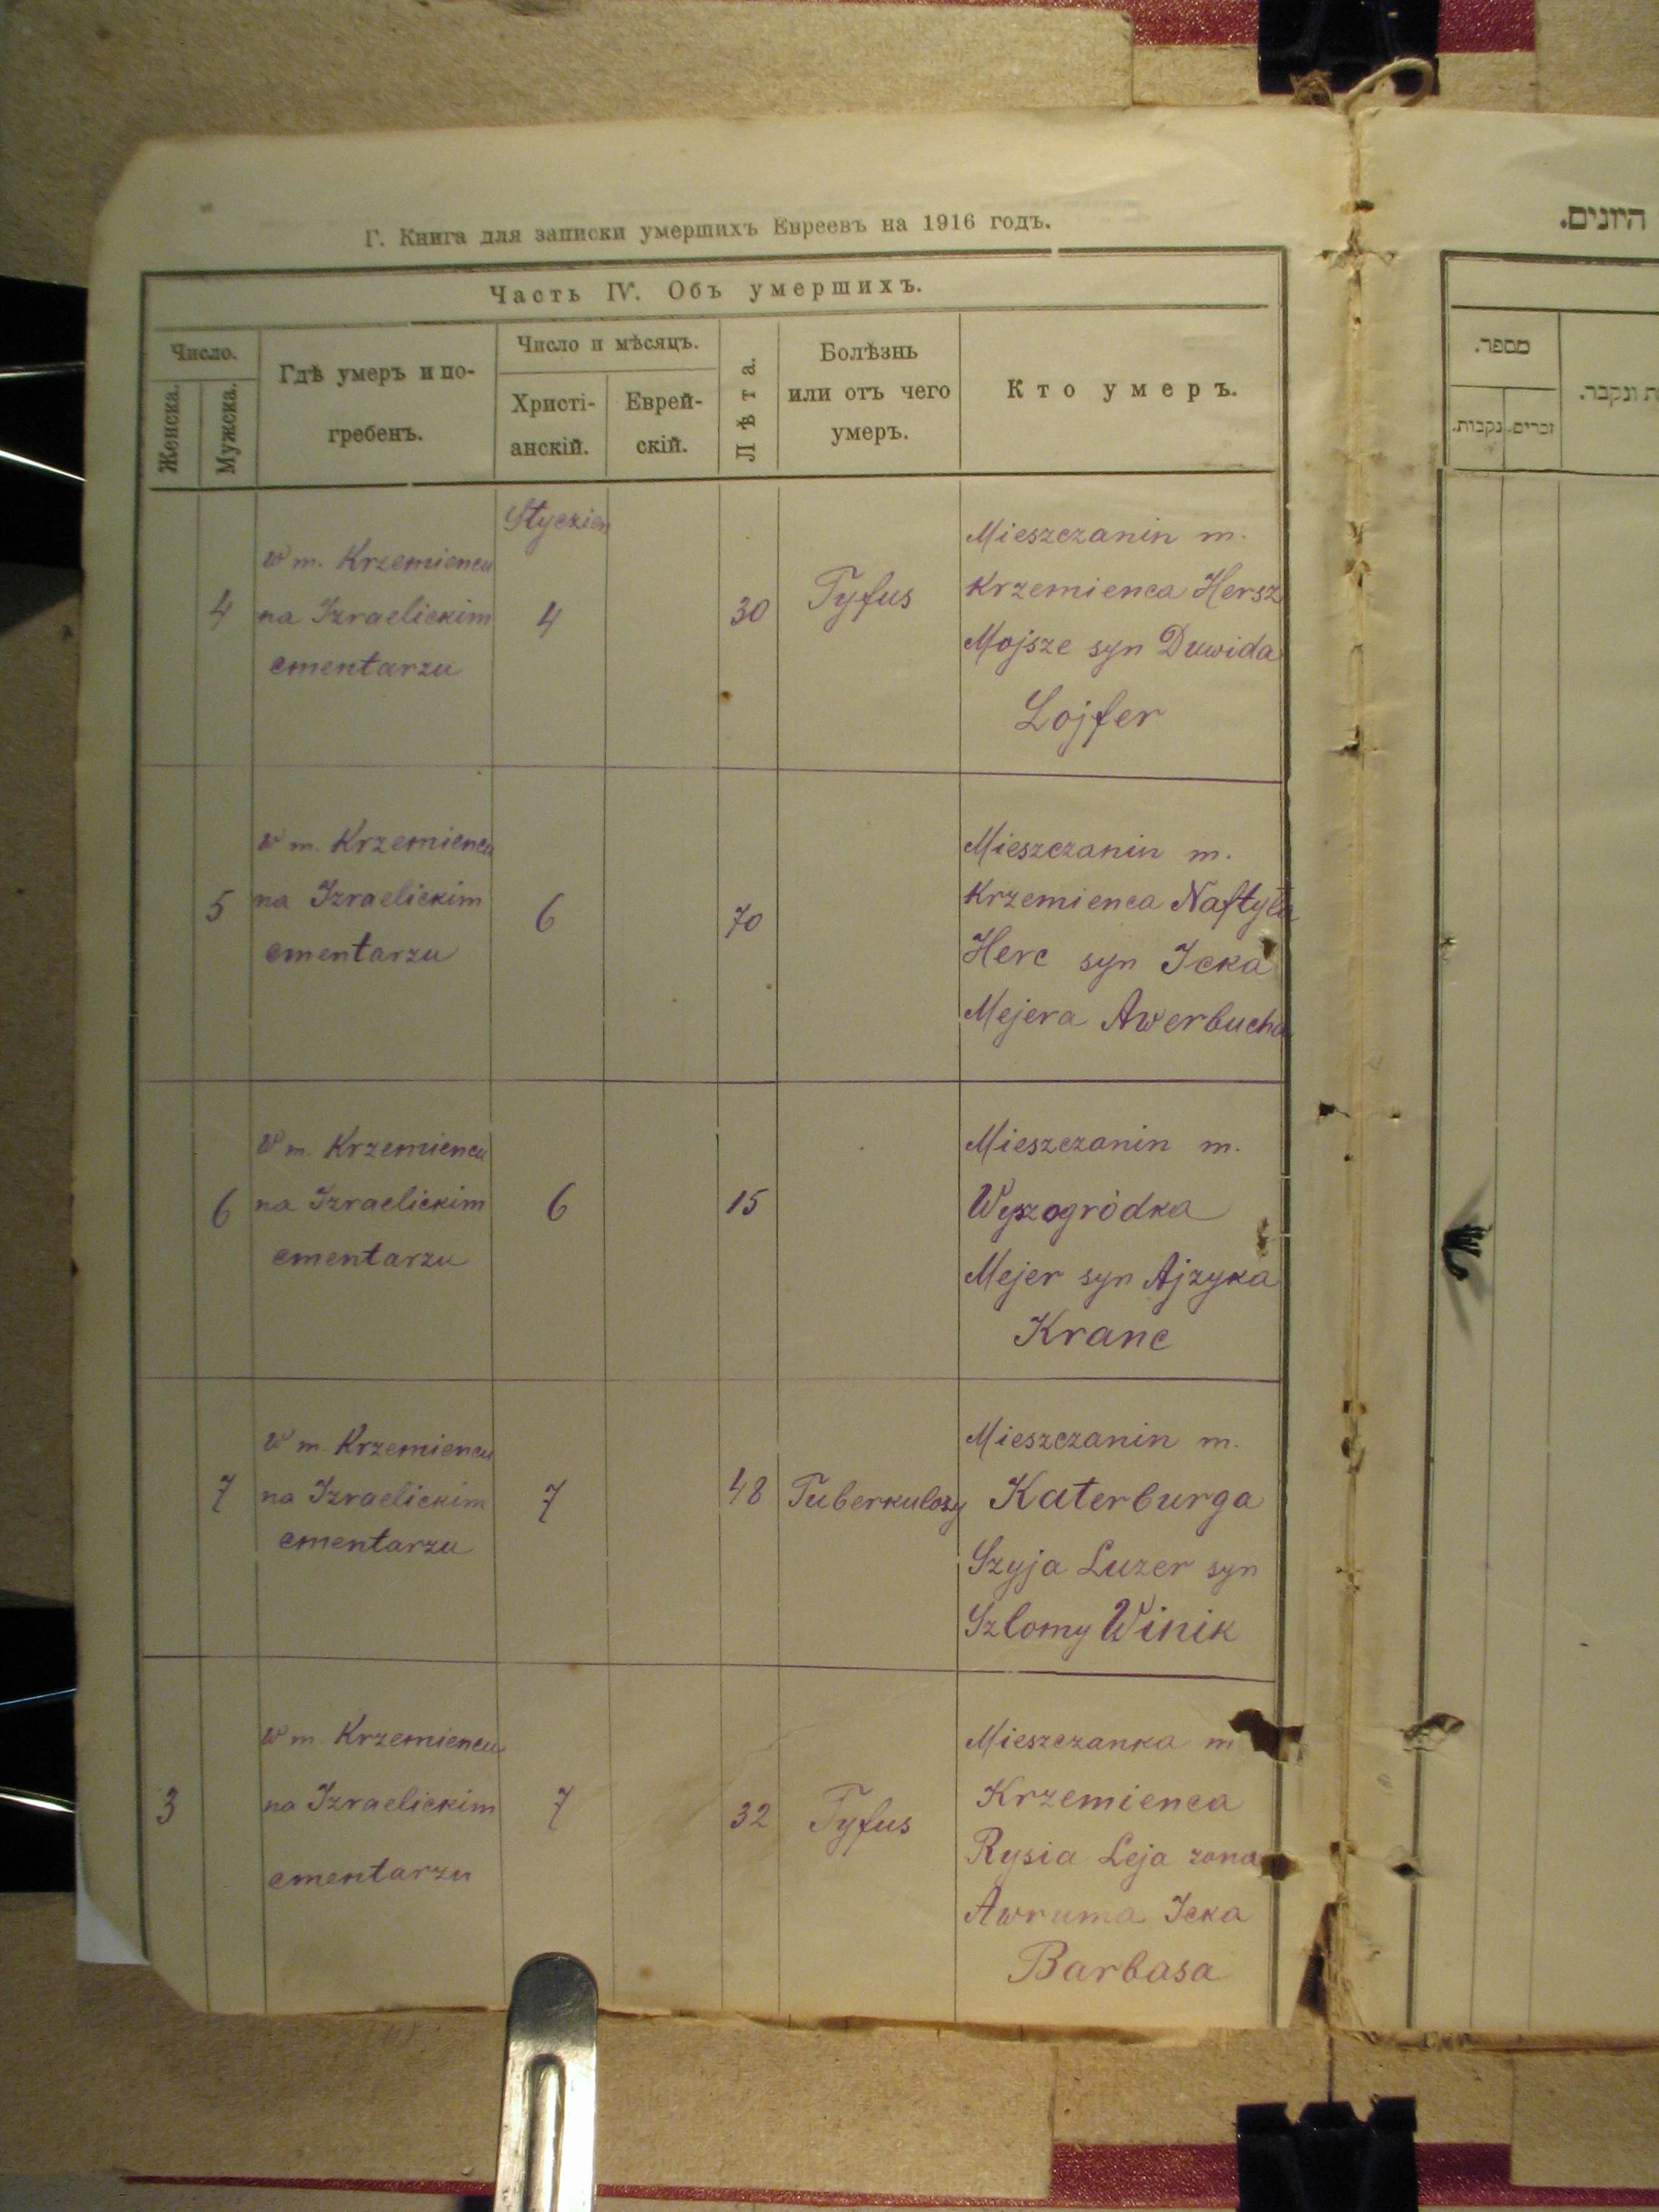 Г. Книга для записки умершихъ Евреевъ на 1916 годъ.
Часть IV. Объ умершихъ.
Число.
Женска.
Мужска.
Гдѣ умеръ и по-
гребенъ.
Число и мѣсяцъ.
Христі-
анскій.
Еврей-
скій.
Лѣта.
Болѣзнь
или отъ чего
умеръ.
Кто умеръ.
4
w m. Krzemiencu
na Izraelickim
cmentarzu
Styczień
4
30
Tyfus
Mieszczanin m.
Krzemienca Hersz
Mojsze syn Duwida
Lojfer
5
w m. Krzemiencu
na Izraelickim
cmentarzu
6
70
Mieszczanin m.
Krzemienca Naftyla
Herc syn Icka
Mejera Awerbucha
6
w m. Krzemiencu
na Izraelickim
cmentarzu
6
15
Mieszczanin m.
Wyszogródka
Mejer syn Ajzyka
Kranc
7
w m. Krzemiencu
na Izraelickim
cmentarzu
7
48
Tuberkulozy
Mieszczanin m.
Katerburga
Szyja Luzer syn
Szlomy Winik
3
w m Krzemiencu
na Izraelickim
cmentarzu
7
32
Tyfus
Mieszczanka m
Krzemienca
Rysia Leja zona
Awruma Icka
Barbasa
היונים.
מספר.
זכרים.
נקבות.
ונקבר.